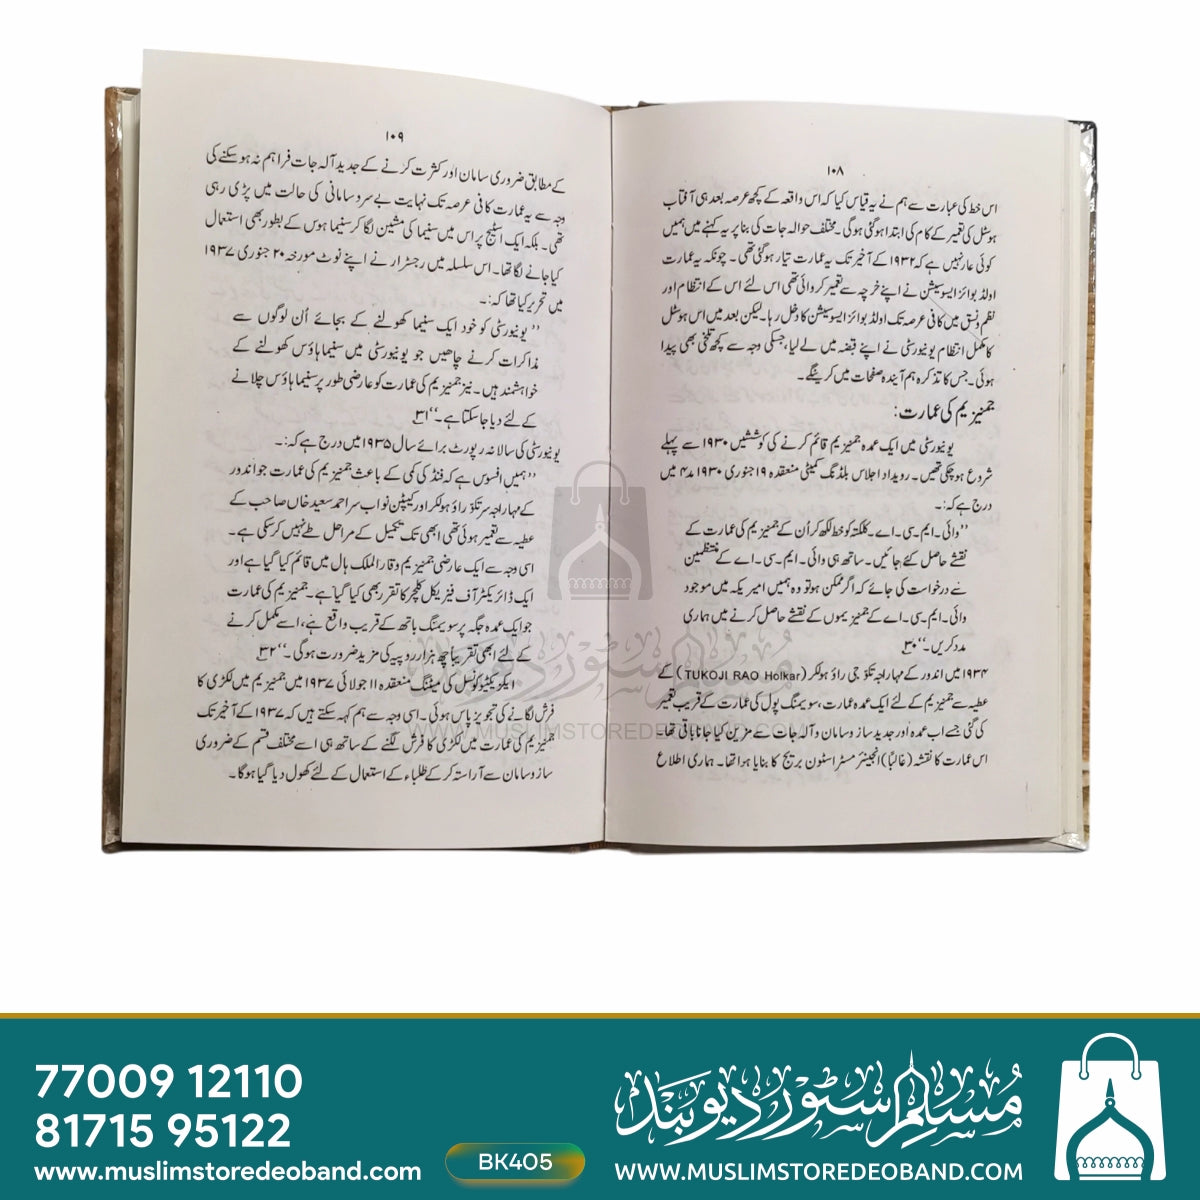 ۱۰۸
اس خط کی عبارت سے ہم نے یہ قیاس کیا کہ اس واقعہ کے کچھ عرصہ بعد ہی آفتاب
ہوسٹل کی تعمیر کے کام کی ابتدا ہوگئی ہوگی۔ مختلف حوالہ جات کی بنا پر یہ کہنے میں ہمیں
کوئی عار نہیں ہے کہ ۱۹۳۲ کے آخیر تک یہ عمارت تیار ہوگئی تھی۔ چونکہ یہ عمارت
اولڈ بوائز ایسوسیشن نے اپنے خرچہ سے تعمیر کروائی تھی اس لئے اس کے انتظام اور
نظم و نسق میں کافی عرصہ تک اولڈ بوائز ایسوسیشن کا دخل رہا۔ لیکن بعد میں اس ہوسٹل
کا مکمل انتظام یونیورسٹی نے اپنے قبضہ میں لے لیا، جسکی وجہ سے کچھ تلخی بھی پیدا
ہوئی۔ جس کا تذکرہ ہم آیندہ صفحات میں کرینگے۔
جمنیزیم کی عمارت:
یونیورسٹی میں ایک عمدہ جمنیزیم قائم کرنے کی کوششیں ۱۹۳۰ سے پہلے
شروع ہوچکی تھیں۔ رویداد اجلاس بلڈنگ کمیٹی منعقدہ ۱۹ جنوری ۱۹۳۰ مد ۴ میں
درج ہے کہ:۔
”وائی۔ ایم۔ سی۔ اے۔ کلکتہ کو خط لکھ کر اُن کے جمنیزیم کی عمارت کے
نقشے حاصل کئے جائیں۔ ساتھ ہی وائی۔ ایم۔ سی۔ اے کے منتظمین
سے درخواست کی جائے کہ اگر ممکن ہو تو وہ ہمیں امیریکہ میں موجود
وائی۔ ایم۔ سی۔ اے کے جمنیزیموں کے نقشے حاصل کرنے میں ہماری
مدد کریں۔“ ۳۰
۱۹۳۴ میں اندور کے مہاراجہ تکوّ جی راؤ ہولکر (TUKOJI RAO Holkar) کے
عطیہ سے جمنیزیم کے لئے ایک عمدہ عمارت، سویمنگ پول کی عمارت کے قریب تعمیر
کی گئی جسے اب عمدہ اور جدید سازوسامان و آلہ جات سے مزین کیا جانا باقی تھا۔
اس عمارت کا نقشہ (غالباً) انجینئر مسٹر اسٹون بریج کا بنایا ہوا تھا۔ ہماری اطلاع
۱۰۹
کے مطابق ضروری سامان اور کثرت کرنے کے جدید آلہ جات فراہم نہ ہوسکنے کی
وجہ سے یہ عمارت کافی عرصہ تک نہایت بے سروسامانی کی حالت میں پڑی رہی
تھی۔ بلکہ ایک اسٹیج پر اس میں سنیما کی مشین لگا کر سنیما ہوس کے بطور بھی استعمال
کیا جانے لگا تھا۔ اس سلسلہ میں رجسٹرار نے اپنے نوٹ مورخہ ۲۰ جنوری ۱۹۳۷
میں تحریر کیا تھا کہ:۔
”یونیورسٹی کو خود ایک سنیما کھولنے کے بجائے اُن لوگوں سے
مذاکرات کرنے چاھیں جو یونیورسٹی میں سنیما ہاؤس کھولنے کے
خواہشمند ہیں۔ نیز جمنیزیم کی عمارت کو عارضی طور پر سنیما ہاؤس چلانے
کے لئے دیا جاسکتا ہے۔“ ۳۱
یونیورسٹی کی سالانہ رپورٹ برائے سال ۱۹۳۵ میں درج ہے کہ:۔
”ہمیں افسوس ہے کہ فنڈ کی کمی کے باعث جمنیزیم کی عمارت جو اندور
کے مہاراجہ سر تکوّ راؤ ہولکر اور کیپٹن نواب سر احمد سعید خاں صاحب کے
عطیہ سے تعمیر ہوئی تھی ابھی تک تکمیل کے مراحل طے نہیں کرسکی ہے۔
اسی وجہ سے ایک عارضی جمنیزیم وقار الملک ہال میں قائم کیا گیا ہے اور
ایک ڈائریکٹر آف فیزیکل کلچر کا تقرر بھی کیا گیا ہے۔ جمنیزیم کی عمارت
جو ایک عمدہ جگہ پر سویمنگ باتھ کے قریب واقع ہے، اسے مکمل کرنے
کے لئے ابھی تقریباً چھ ہزار روپیہ کی مزید ضرورت ہوگی۔“ ۳۲
ایکزیکیٹیو کونسل کی میٹنگ منعقدہ ۱۱ جولائی ۱۹۳۷ میں جمنیزیم میں لکڑی کا
فرش لگانے کی تجویز پاس ہوئی۔ اسی وجہ سے ہم کہہ سکتے ہیں کہ ۱۹۳۷ کے آخیر تک
جمنیزیم کی عمارت میں لکڑی کا فرش لگنے کے ساتھ ہی اسے مختلف قسم کے ضروری
سازوسامان سے آراستہ کر کے طلباء کے استعمال کے لئے کھول دیا گیا ہوگا۔
مسلم سٹور دیوبند
WWW.MUSLIMSTOREDEOBAND.COM
77009 12110
81715 95122
www.muslimstoredeoband.com
BK405
مسلم سٹور دیوبند
WWW.MUSLIMSTOREDEOBAND.COM